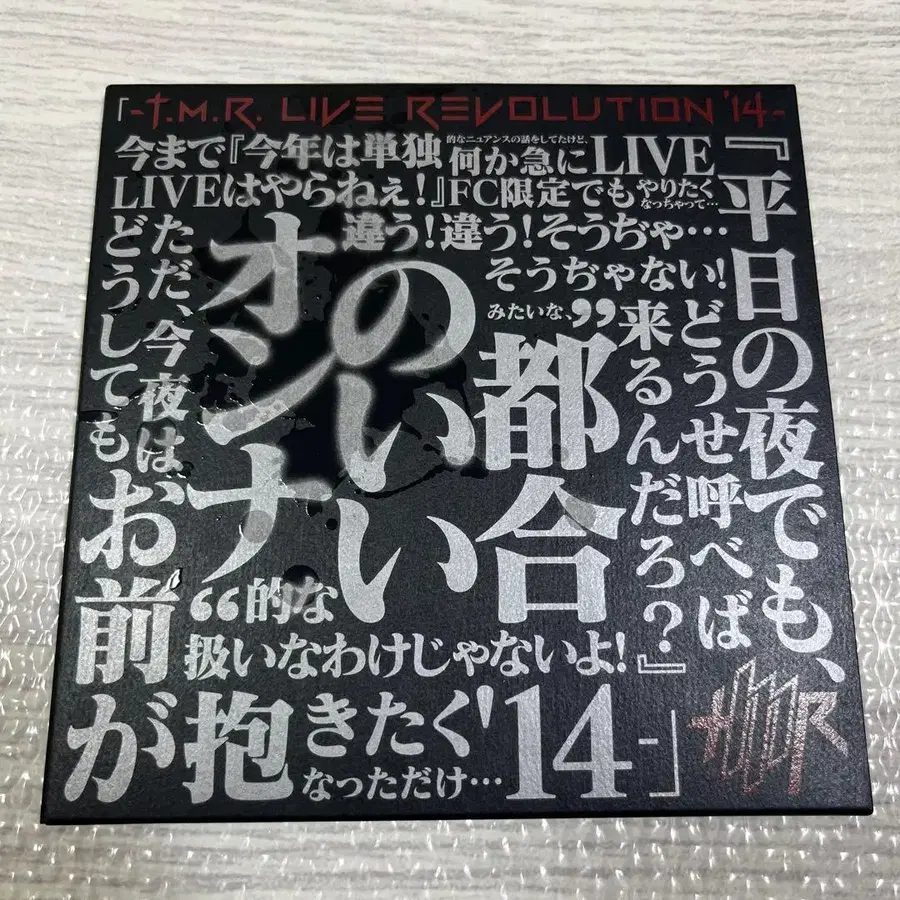 「-T.M.R. LIVE REVOLUTION '14-
今まで『今年は単独
LIVEはやらねぇ！』
的なニュアンスの話をしてたけど、
何か急にLIVE
FC限定でもやりたく
なっちゃって…
違う！違う！そうぢゃ…
そうぢゃない！
『平日の夜でも、
どうせ呼べば
来るんだろ？』
みたいな、”
都合
のいい
オンナ
“的な
扱いなわけじゃないよ！
ただ、今夜は
どうしても
お前
が抱きたく
なっただけ…
'14-」
TMR